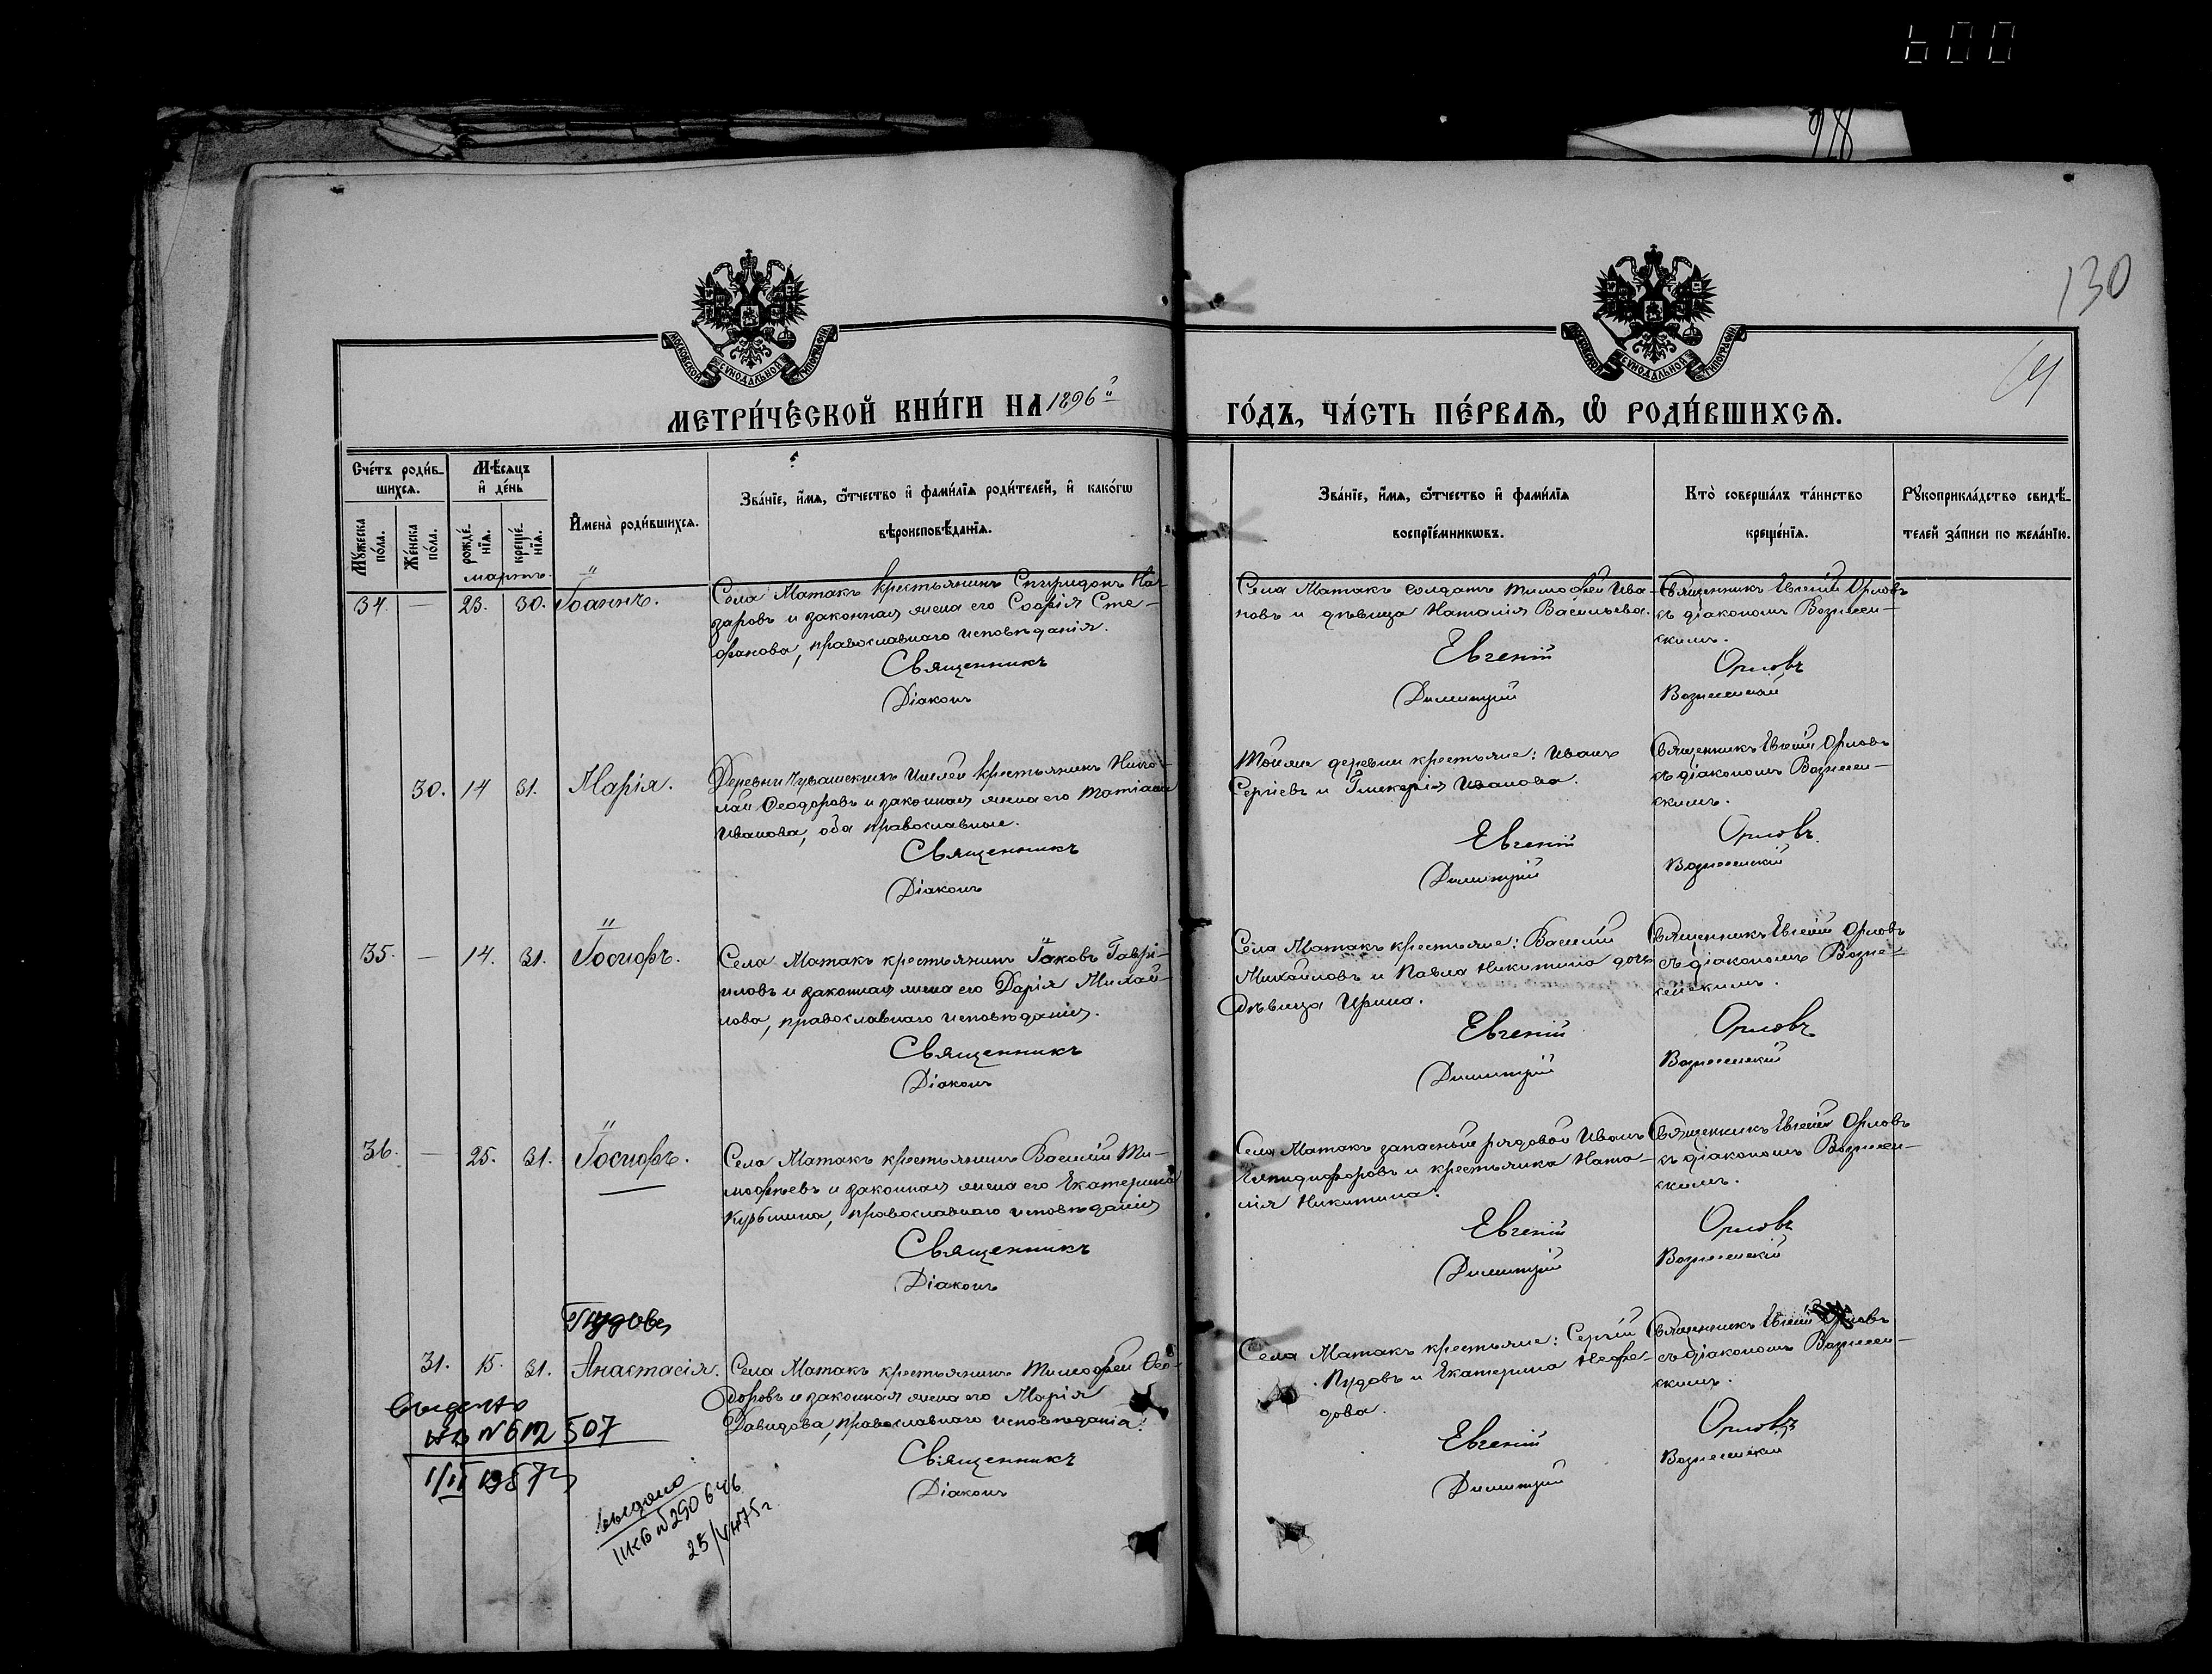 600
98
130
МОСКОВСКОЙ СѴНОДАЛЬНОЙ ТИПОГРАФІИ
МОСКОВСКОЙ СѴНОДАЛЬНОЙ ТИПОГРАФІИ
МЕТРИ́ЧЕСКОЙ КНИ́ГИ НА 1896й
ГО́ДЪ, ЧА́СТЬ ПЕ́РВАѦ, Ѡ҆ РОДИ́ВШИХСѦ.
Сче́тъ роди́в-
шихсѧ.
Мѣ́сѧцъ
и҆ де́нь
И҆мена̀ роди́вшихсѧ.
Зва́нїе, и҆́мѧ, ѻ҆́тчество и҆ фами́лїѧ роди́телей, и҆ како́гѡ
вѣроисповѣ́данїѧ.
Мꙋ́жеска
по́ла.
Же́нска
по́ла.
рожде́-
нїѧ.
креще́-
нїѧ.
Зва́нїе, и҆́мѧ, ѻ҆́тчество и҆ фами́лїѧ
воспрїе́мникѡвъ.
Кто̀ соверша́лъ та́инство
креще́нїѧ.
Рꙋкоприкла́дство свидѣ́-
телей за́писи по жела́нїю.
мартъ.
34. — 23. 30. Іоаннъ.
Села Матакъ крестьянинъ Спиридонъ На-
заровъ и законная жена его Софія Сте-
фанова, православнаго исповѣданія.
Священникъ
Діаконъ
Села Матакъ солдатъ Тимофей Ива-
новъ и дѣвица Наталія Васильева.
Евгеній
Димитрій
Священникъ Евгеній Орловъ
съ діакономъ Вознесен-
скимъ.
Орловъ
Вознесенскій
30. 14 31. Марія.
Деревни Чувашскихъ Ишлей крестьянинъ Нико-
лай Ѳеодоровъ и законная жена его Татіана
Иванова, оба православные.
Священникъ
Діаконъ
Той же деревни крестьяне: Иванъ
Сергіевъ и Гликерія Иванова.
Евгеній
Димитрій
Священникъ Евгеній Орловъ
съ діакономъ Вознесен-
скимъ.
Орловъ
Вознесенскій
35. — 14. 31. Іосифъ.
Села Матакъ крестьянинъ Іаковъ Гаврі-
иловъ и законная жена его Дарія Михай-
лова, православнаго исповѣданія.
Священникъ
Діаконъ
Села Матакъ крестьяне: Василій
Михайловъ и Павла Никитина дочь
дѣвица Ирина.
Евгеній
Димитрій
Священникъ Евгеній Орловъ
съ діакономъ Возне-
сенскимъ.
Орловъ
Вознесенскій
36. — 25. 31. Іосифъ.
Села Матакъ крестьянинъ Василій Ти-
моѳеевъ и законная жена его Екатерина
Кузьмина, православнаго исповѣданія
Священникъ
Діаконъ
Села Матакъ запасный рядовой Иванъ
Елпидифоровъ и крестьянка Ната-
лія Никитина.
Евгеній
Димитрій
Священникъ Евгеній Орловъ
съ діакономъ Вознесен-
скимъ.
Орловъ
Вознесенскій
Пудова
31. 15. 31. Анастасія.
Села Матакъ крестьянинъ Тимофей Ѳео-
доровъ и законная жена его Марія
Давидова, православнаго исповѣданія.
Священникъ
Діаконъ
Села Матакъ крестьяне: Сергій
Пудовъ и Екатерина Меѳо-
дова.
Евгеній
Димитрій
Священникъ Евгеній Орловъ
съ діакономъ Вознесен-
скимъ.
Орловъ
Вознесенскій
507
выдано
№ 290646